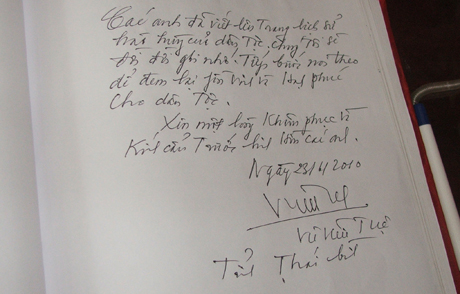 Các anh đã viết lên trang lịch sử
hào hùng của dân tộc, chúng tôi sẽ
đời đời ghi nhớ. Tiếp bước noi theo
để đem lại yên vui và hạnh phúc
cho dân tộc.
Xin một lòng khâm phục và
kính cẩn trước linh hồn các anh.
Ngày 23/4/2010
Vũ Hữu Tuệ
Tỉnh Thái bình